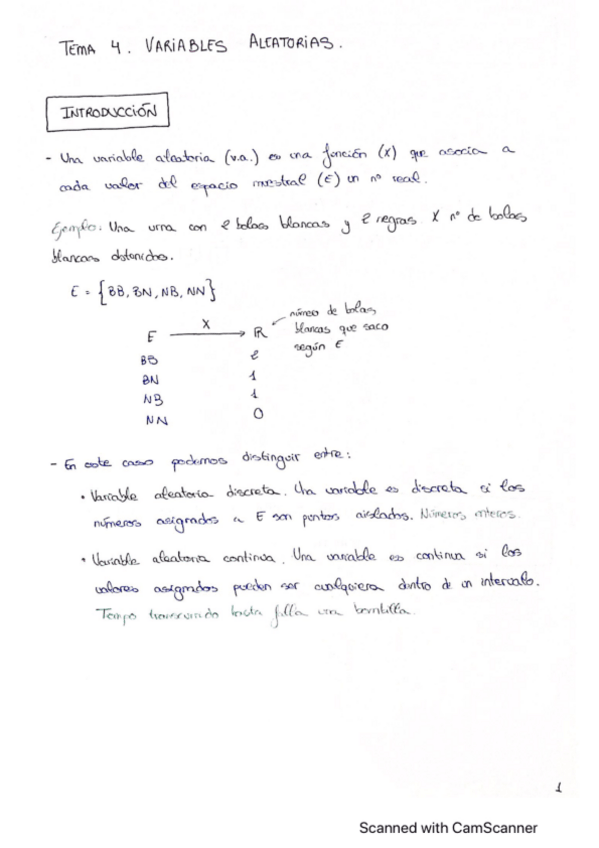 TEMA 4. VARIABLES ALEATORIAS.
INTRODUCCIÓN
- Una variable aleatoria (v.a.) es una función (X) que asocia a
cada valor del espacio muestral (E) un nº real.
Ejemplo: Una urna con 2 bolas blancas y 2 negras. X nº de bolas
blancas obtenidas.
E = {BB, BN, NB, NN}
E X → R ← número de bolas
blancas que saco
según E
BB 2
BN 1
NB 1
NN 0
- En este caso podemos distinguir entre:
• Variable aleatoria discreta. Una variable es discreta si los
números asignados a E son puntos aislados. Números enteros.
• Variable aleatoria continua. Una variable es continua si los
valores asignados pueden ser cualquiera dentro de un intervalo.
Tiempo transcurrido hasta falla una bombilla.
1
Scanned with CamScanner